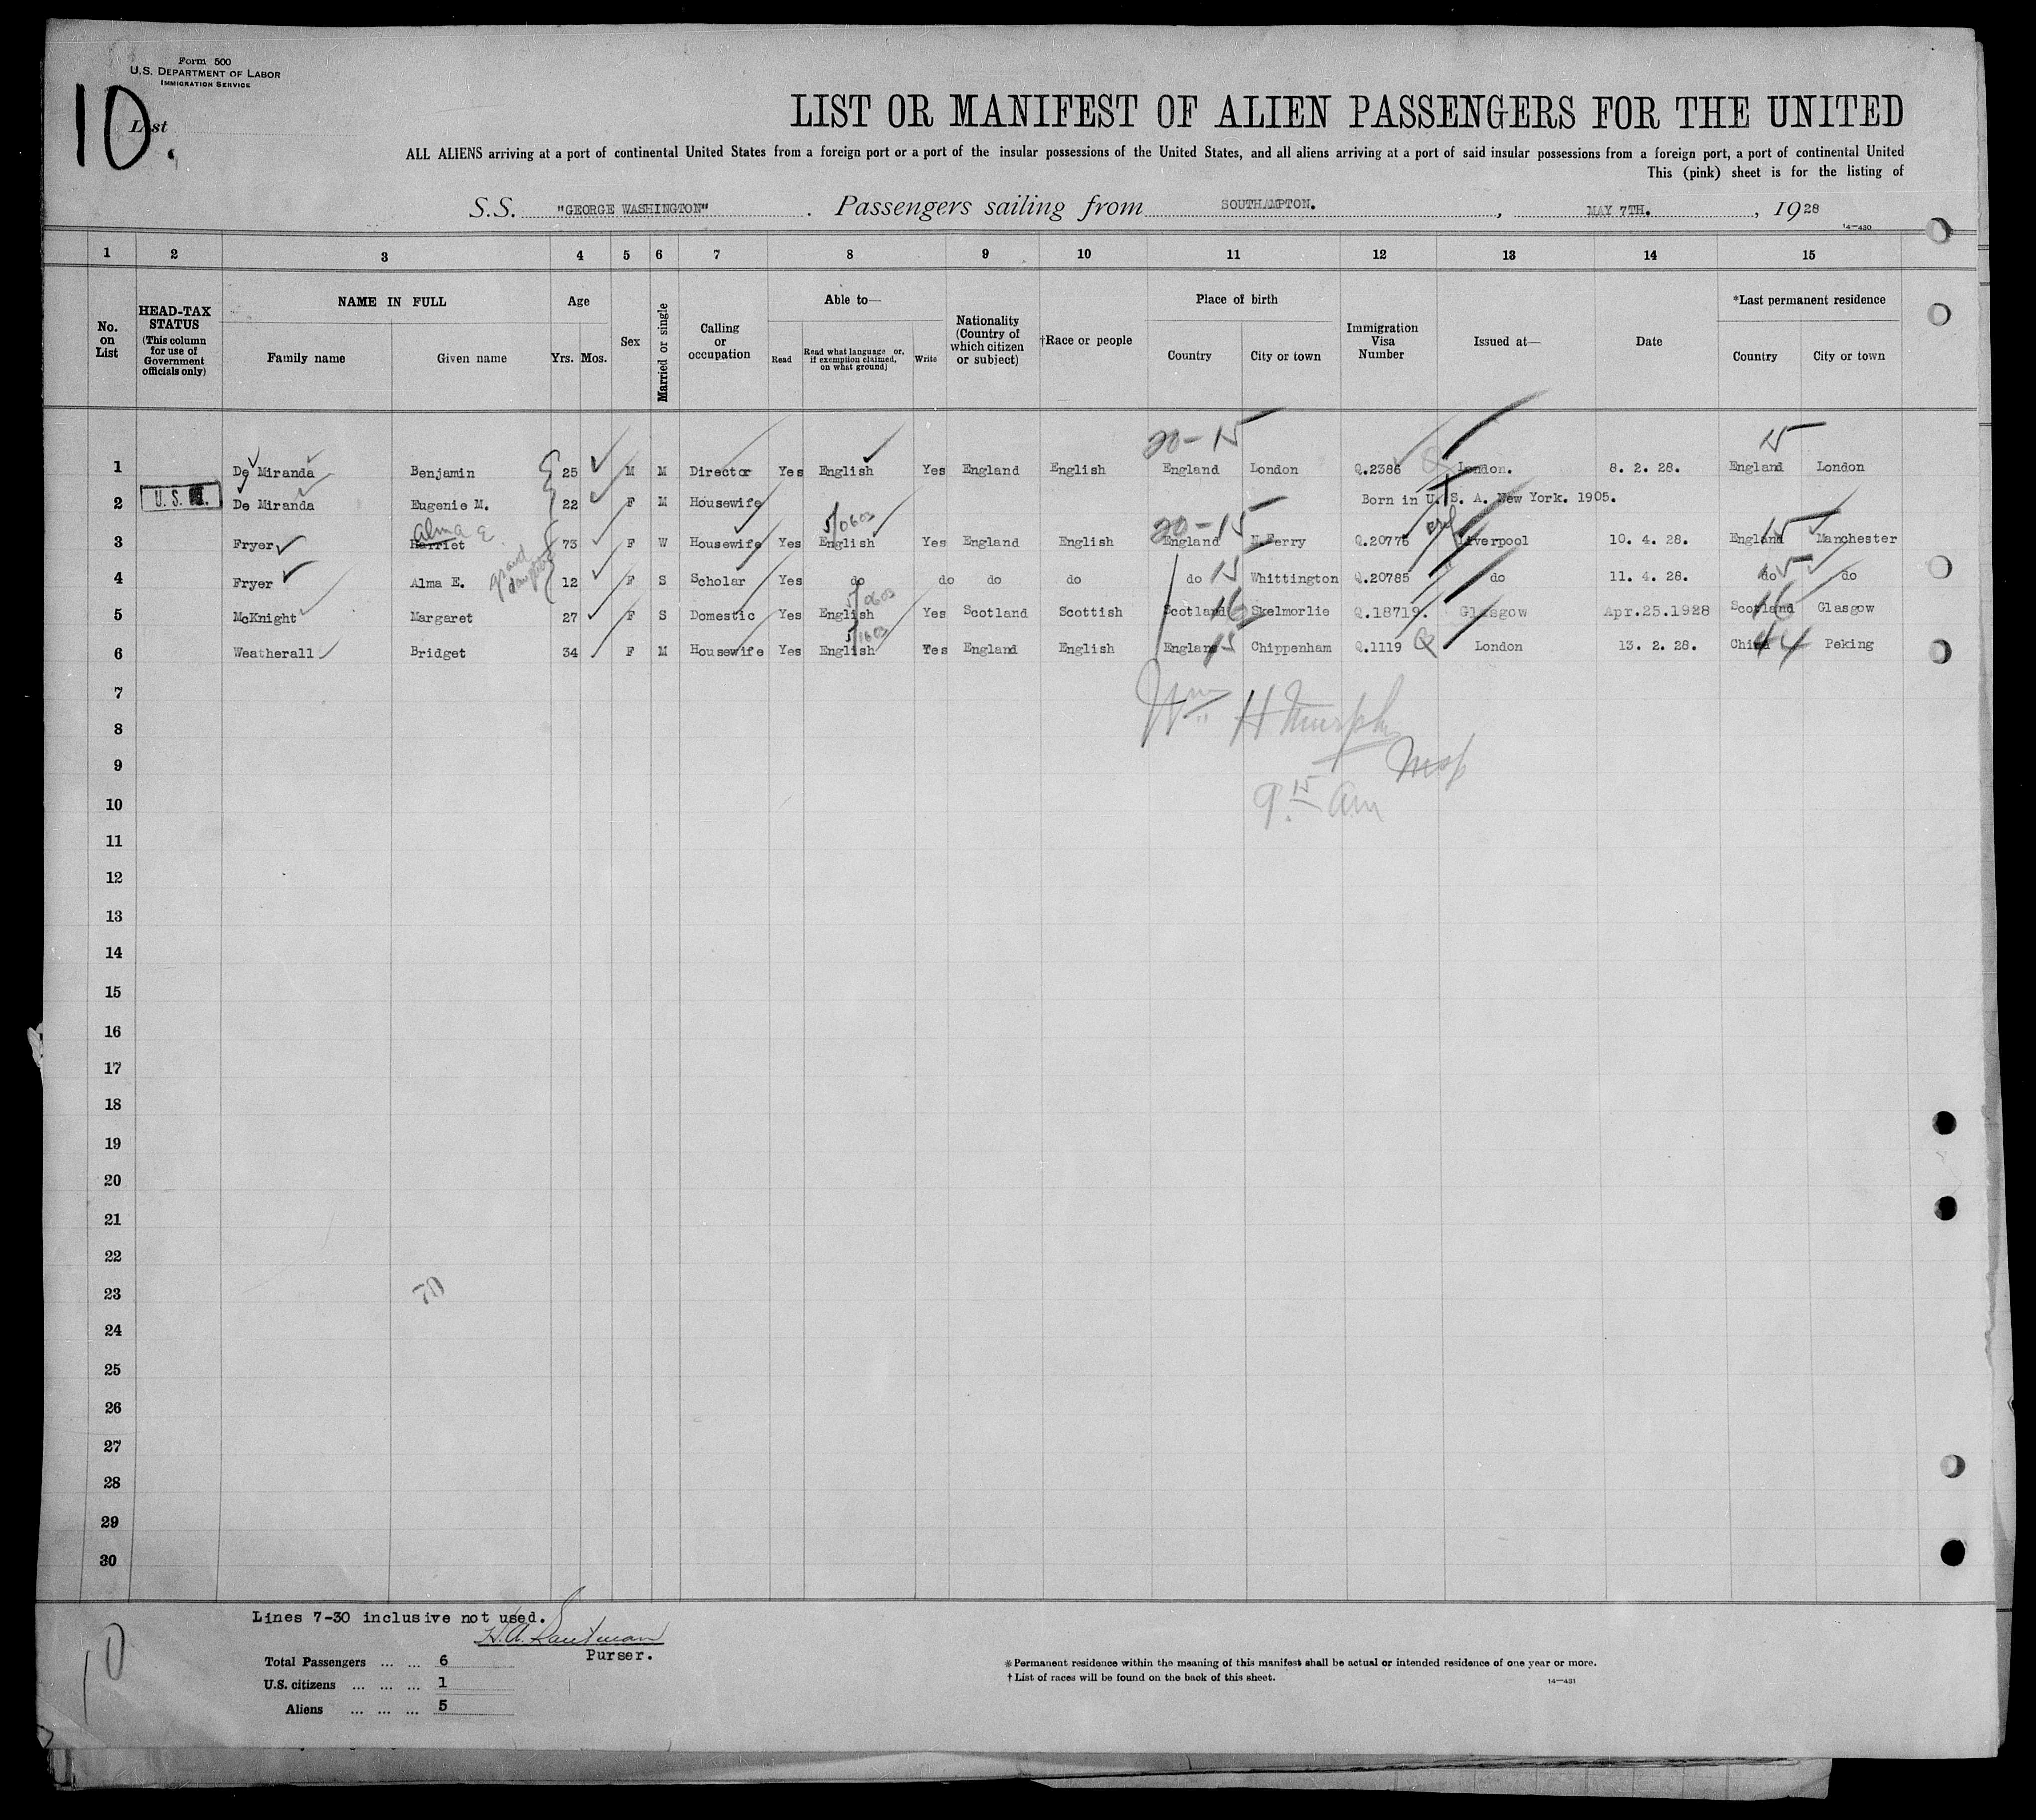 Form 500
U.S. DEPARTMENT OF LABOR
IMMIGRATION SERVICE
10.
List
LIST OR MANIFEST OF ALIEN PASSENGERS FOR THE UNITED
ALL ALIENS arriving at a port of continental United States from a foreign port or a port of the insular possessions of the United States, and all aliens arriving at a port of said insular possessions from a foreign port, a port of continental United
This (pink) sheet is for the listing of
S.S. "GEORGE WASHINGTON". Passengers sailing from SOUTHAMPTON., MAY 7TH., 1928
14-430
1 2 3 4 5 6 7 8 9 10 11 12 13 14 15
No. on List
HEAD-TAX STATUS (This column for use of Government officials only)
NAME IN FULL
Family name Given name
Age
Yrs. Mos.
Sex
Married or single
Calling or occupation
Able to—
Read
Read what language or, if exemption claimed, on what ground]
Write
Nationality (Country of which citizen or subject)
†Race or people
Place of birth
Country City or town
Immigration Visa Number
Issued at—
Date
*Last permanent residence
Country City or town
20-15 15
1 De Miranda Benjamin 25 M M Director Yes English Yes England English England London Q.2386 London. 8. 2. 28. England London
2 U.S. De Miranda Eugenie M. 22 F M Housewife Born in U. S. A. New York. 1905.
Alma E. 20-15 15
3 Fryer Harriet 73 F W Housewife Yes English Yes England English England N.Ferry Q.20776 Liverpool 10. 4. 28. England Manchester
grand daughter
4 Fryer Alma E. 12 F S Scholar Yes do do do do do 15 Whittington Q.20785 do 11. 4. 28. do 15 do
5 McKnight Margaret 27 F S Domestic Yes English Yes Scotland Scottish Scotland 16 Skelmorlie Q.18719. Glasgow Apr.25.1928 Scotland 16 Glasgow
6 Weatherall Bridget 34 F M Housewife Yes English Yes England English England 15 Chippenham Q.1119 Q London 13. 2. 28. China 44 Peking
7
Wm H Murphy
8
9
Insp
10
9.15 am
11
12
13
14
15
16
17
18
19
20
21
22
23
24
25
26
27
28
29
30
Lines 7-30 inclusive not used.
Purser.
10
Total Passengers ... ... 6
U.S. citizens ... ... ... 1
Aliens ... ... ... 5
*Permanent residence within the meaning of this manifest shall be actual or intended residence of one year or more.
†List of races will be found on the back of this sheet.
14-431